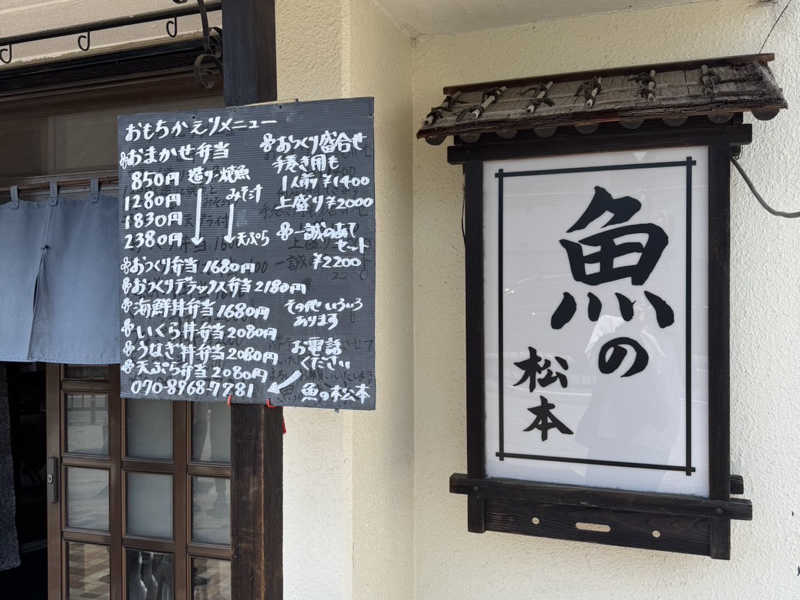 おもちかえりメニュー
おまかせ弁当
850円
1280円
1830円
2380円
焼魚
みそ汁
天ぷら
おつくり弁当 1680円
おつくりデラックス弁当 2180円
海鮮丼弁当 1680円
いくら丼弁当 2080円
うなぎ丼弁当 2080円
天ぷら弁当 2080円
070-8968-7781
おつくり盛合せ
手巻き用も
1人前 ¥1400
上盛り ¥2000
一誠のあて
セット
¥2200
その他いろいろ
あります
お電話
ください
魚の松本
魚の
松本